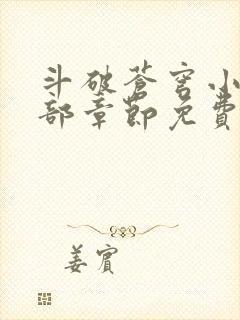 斗破苍穹小
部章節免費
姜賓